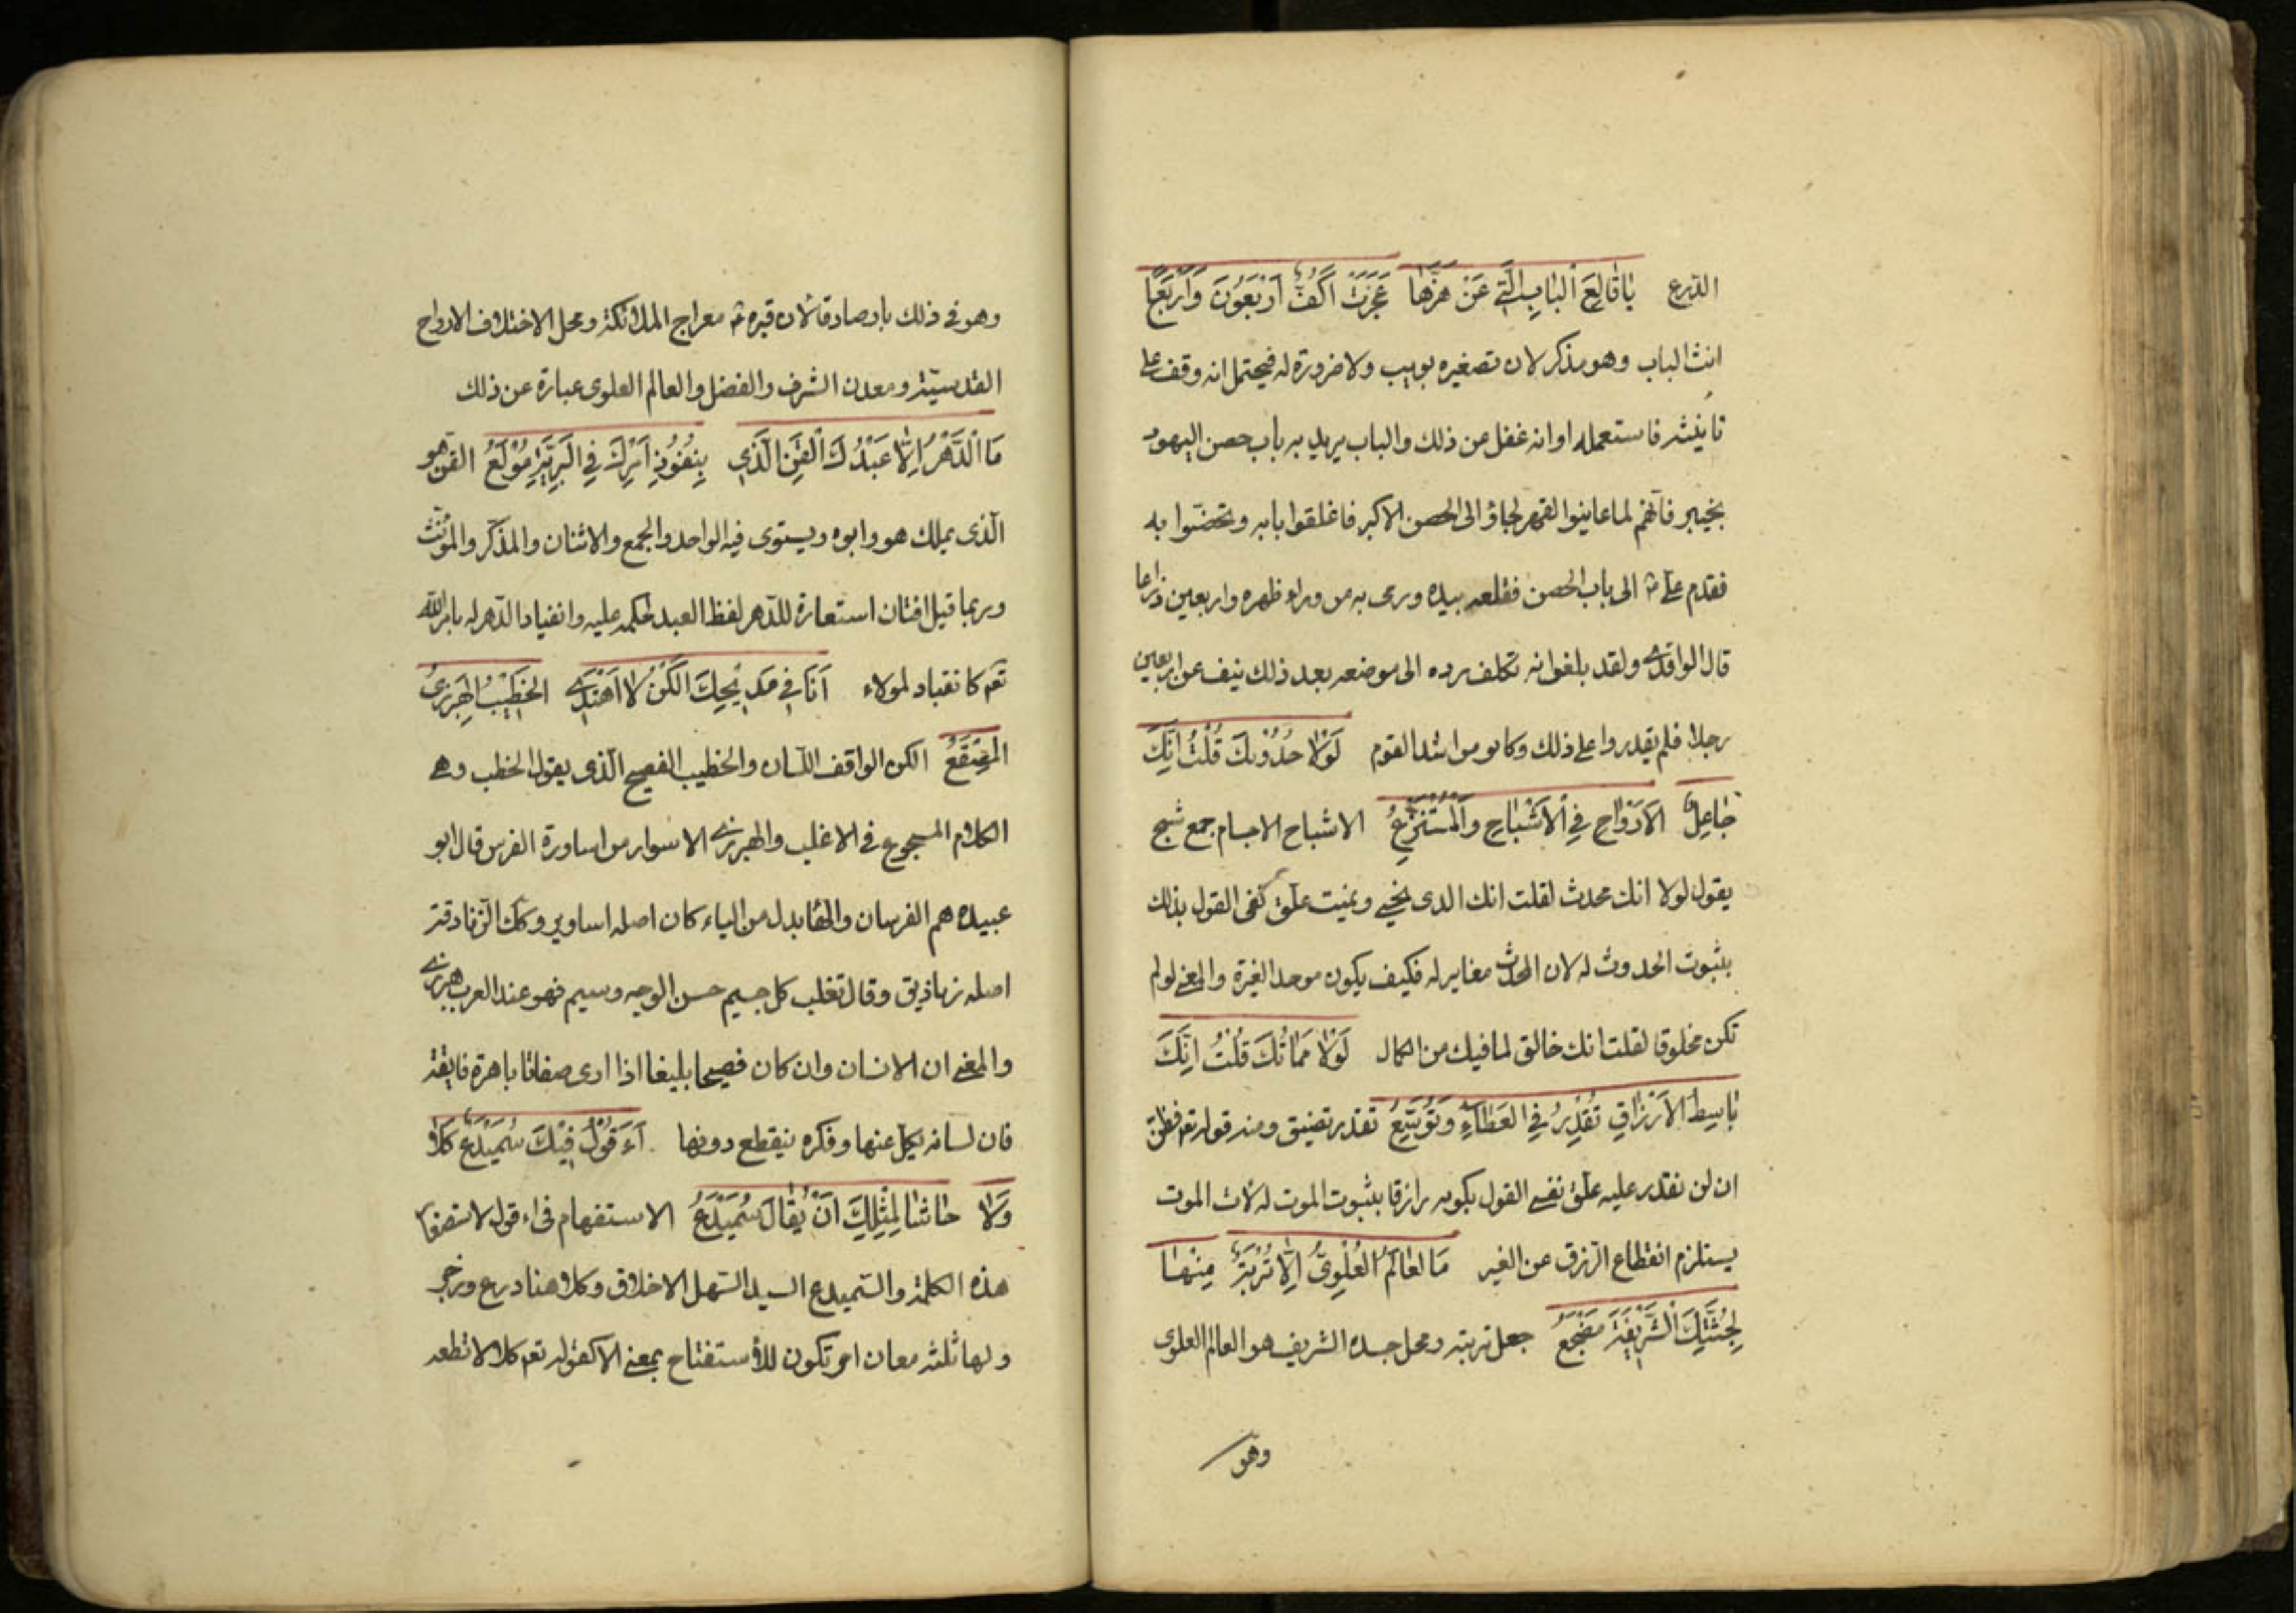 الدرع يَا قَالِعَ الْبَابِ الَّتِي عَنْ هَزِّهَا عَجَزَتْ اَكُفٌّ اَرْبَعُونَ وَاَرْبَعٌ
انث الباب وهو مذكر لان تصغيره بويب ولا ضرورة له فيحتمل انه وقف على
تانيثه فاستعمله او انه غفل عن ذلك والباب يريد به باب حصن اليهود
بخيبر فانهم لما عاينوا القهر لجاؤا الى الحصن الاكبر فاغلقوا بابه وتحصنوا به
فقدم على الى باب الحصن فقلعه بيده ورمى به من وراء ظهره واربعين ذراعا
قال الواقدى ولقد بلغوا انه تكلف برده الى موضعه بعد ذلك نيف عن اربعين
رجلا فلم يقدروا على ذلك وكانو من اشد القوم لَوْلَا حُدُوثُكَ قُلْتُ اِنَّكَ
جَاعِلُ الْاَرْوَاحِ فِي الْاَشْبَاحِ وَالْمُسْتَنْزِعُ الاشباح الاجسام جمع شبح
يقول لولا انك محدث لقلت انك الذى يحيى ويميت علق نفى القول بذلك
بثبوت الحدوث له لان المحدث مغاير له فكيف يكون موحدا لغيره والمعنى لو لم
تكن مخلوقا لقلت انك خالق لما فيك من الكمال لَوْلَا مَمَاتُكَ قُلْتُ اِنَّكَ
بَاسِطُ الْاَرْزَاقِ تُقَدِّرُ فِي الْعَطَاءِ وَتُوَسِّعُ تقدر تضيق ومنه قوله تعم فظن
ان لن نقدر عليه علق نفى القول بكونه رازقا بثبوت الموت له لان الموت
يستلزم انقطاع الرزق عن الغير مَا الْعَالَمُ الْعُلْوِيُّ اِلَّا تُرْبَةٌ مِنْهَا
لِجُثَّتِكَ الشَّرِيفَةِ مَضْجَعُ جعل تربته ومحل جسده الشريف هو العالم العلوى
وهو
وهو فى ذلك بار صادق لان قبره معراج الملائكة ومحل الاختلاف الارواح
القدسية ومعدن الشرف والفضل والعالم العلوى عبارة عن ذلك
مَا الدَّهْرُ اِلَّا عَبْدُكَ الْقِنُّ الَّذِي بِنُفُوذِ اَمْرِكَ فِي الْبَرِيَّةِ مُولَعُ القن هو
الذى يملك هو وابوه ويستوى فيه الواحد والجمع والاثنان والمذكر والمؤنث
وربما قيل اقنان استعارة للدهر لفظ العبد لحكمه عليه وانقياد الدهر له بامر الله
تعم كانقياد لمولاه اَنَا فِي مَدِيحِكَ اَلْكَنٌ لَا اَهْتَدِي الخَطِيبُ الْهِبْرِزِيُّ
الْمِصْقَعُ الكن الواقف اللسان والخطيب الفصيح الذى يقول الخطب وهى
الكلام المسجوع فى الاغلب والهبرزى الاسوار من اساورة الفرس قال ابو
عبيده هم الفرسان والهاء بدل من الياء كان اصله اساوير وكك الزنادقة
اصله زناذيق وقال تغلب كل جسيم حسن الوجه وسيم فهو عند العرب هبرزى
والمعنى ان الانسان وان كان فصيحا بليغا اذا ارى صفاتا باهرة فايقة
فان لسانه يكل عنها وفكره ينقطع دونها ءَاَقُولُ فِيْكَ سُمَيْدَعٌ كَلَّا
وَلَا حَاشَا لِمِثْلِكَ اَنْ يُقَالَ سُمَيْدَعُ الاستفهام فى اءقول لاستصغار
هذه الكلمة والسميدع السيد السهل الاخلاق وكلا هنا درع وزجر
ولها ثلثه معان اخر تكون للاستفتاح بمعنى الا كقوله تعم كلا لا تطعه